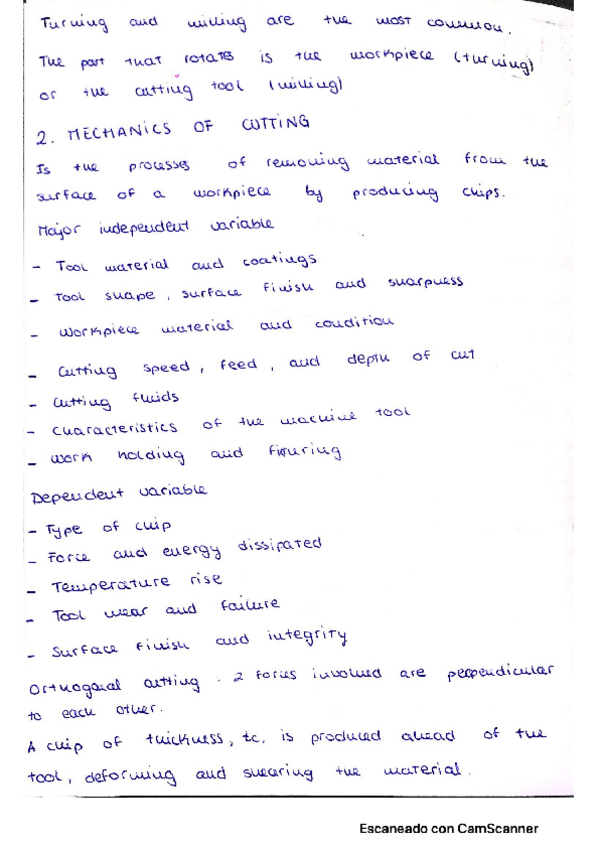 Turning and milling are the most common.
The part that rotates is the workpiece (turning)
or the cutting tool (milling)
2. MECHANICS OF CUTTING
Is the processes of removing material from the
surface of a workpiece by producing chips.
Major independent variable
- Tool material and coatings
- Tool shape, surface finish and sharpness
- Workpiece material and condition
- Cutting speed, feed, and depth of cut
- Cutting fluids
- Characteristics of the machine tool
- Work holding and fixturing
Dependent variable
- Type of chip
- Force and energy dissipated
- Temperature rise
- Tool wear and failure
- Surface finish and integrity
Orthogonal cutting. 2 forces involved are perpendicular
to each other.
A chip of thickness, tc, is produced ahead of the
tool, deforming and shearing the material.
Escaneado con CamScanner